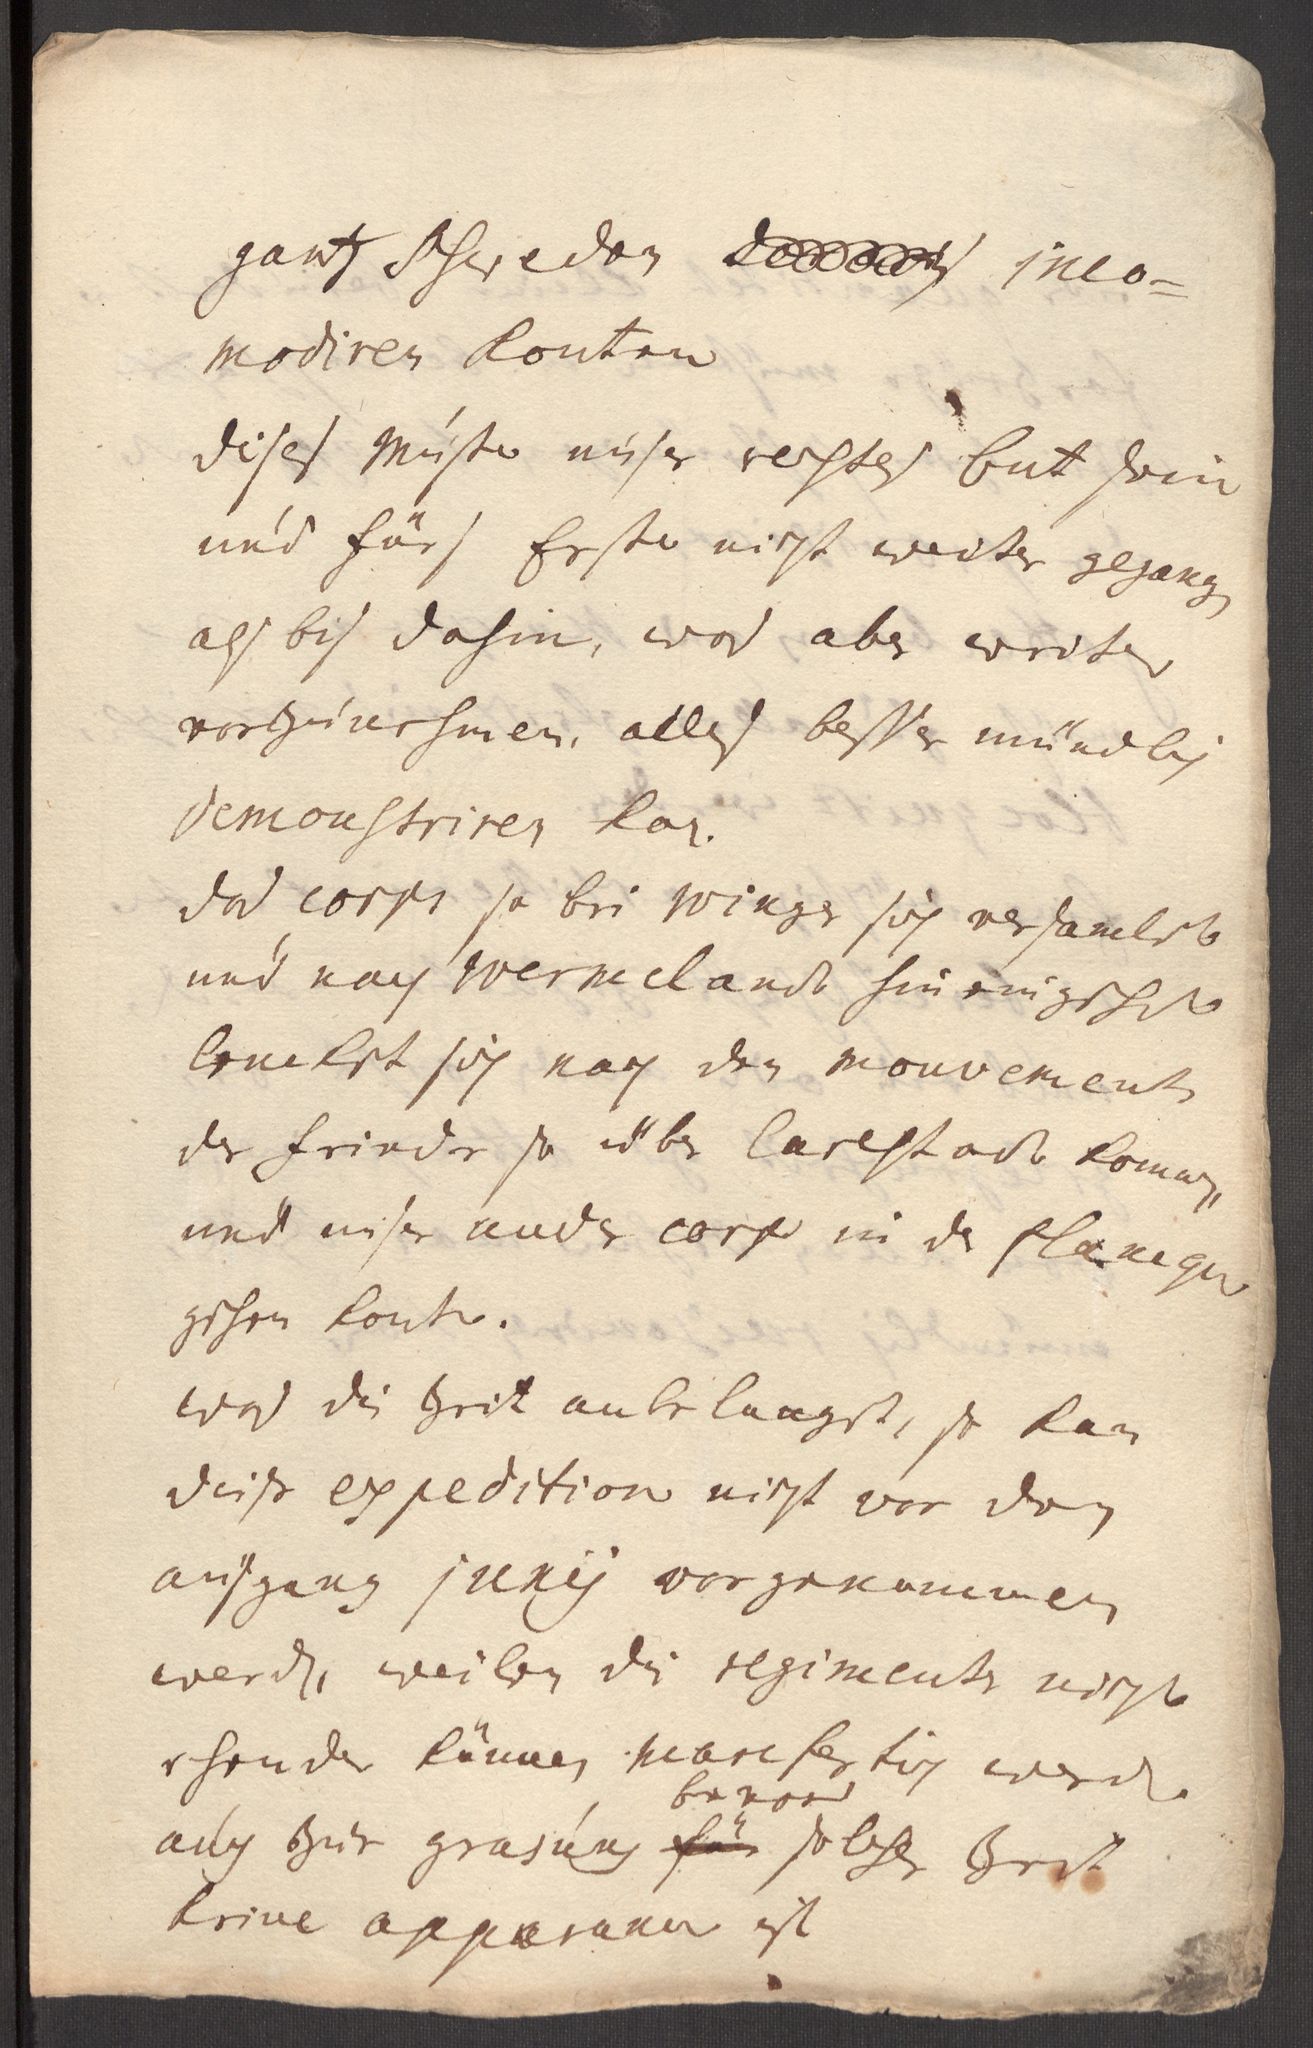 gantz Schweden inco-
modiren konten
dises müste unser rechtes but sein
und fürs Erste nicht weiter gegang
als bis dahin, was aber weiter
vorzunehmen, alles besser mündlich
demonstriren kan.
das corps so bei Winger sich versamlete
und nach Wermelandt hin eingehet
lencket sich nach den mouvements
der feinde so über Carlstadt komen,
und unser ander corps in de flanque
gehen konte.
was die Zeit anbelanget, so kan
diese expedition nicht vor dem
ausgang junij vorgenommen
werden, weilen die regimenter nicht
ehender können marcfertig werden
auch zur grasung bevor solcher Zeit
keine apparance ist